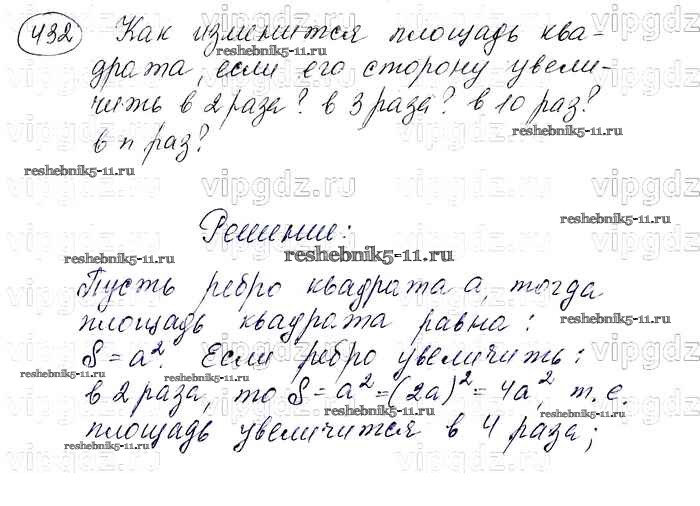 432 Как изменится площадь ква-
драта, если его сторону увели-
чить в 2 раза? в 3 раза? в 10 раз?
в n раз?
Решение:
Пусть ребро квадрата a, тогда
площадь квадрата равна:
S = a². Если ребро увеличить:
в 2 раза, то S = a² = (2a)² = 4a², т.е.
площадь увеличится в 4 раза;